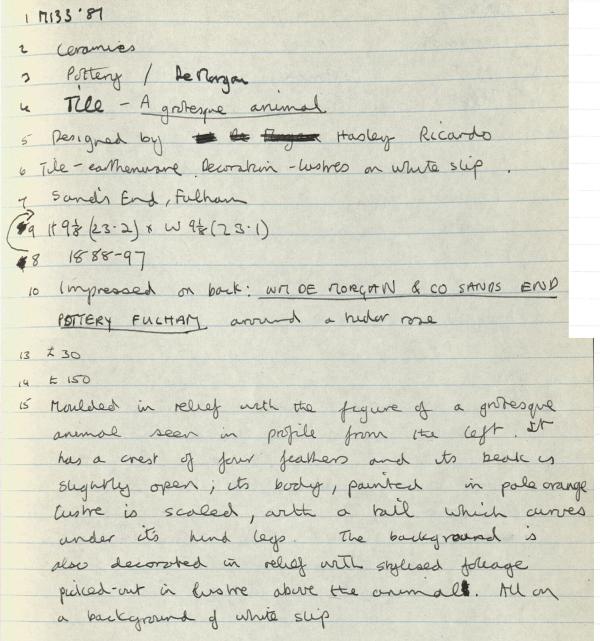 1 M133 '87
2 Ceramics
3 Pottery / De Morgan
4 Tile - A grotesque animal
5 Designed by Hasley Ricardo
6 Tile - earthenware. Decoration - lustres on white slip.
7 Sands End, Fulham
9 H 9⅛ (23.2) x W 9⅛ (23.1)
8 1888-97
10 Impressed on back: WM DE MORGAN & CO SANDS END
POTTERY FULHAM around a tudor rose
13 £30
14 £150
15 Moulded in relief with the figure of a grotesque
animal seen in profile from the left. It
has a crest of four feathers and its beak is
slightly open; its body, painted in pale orange
lustre is scaled, with a tail which curves
under its hind legs. The background is
also decorated in relief with stylised foliage
picked-out in lustre above the animal. All on
a background of white slip